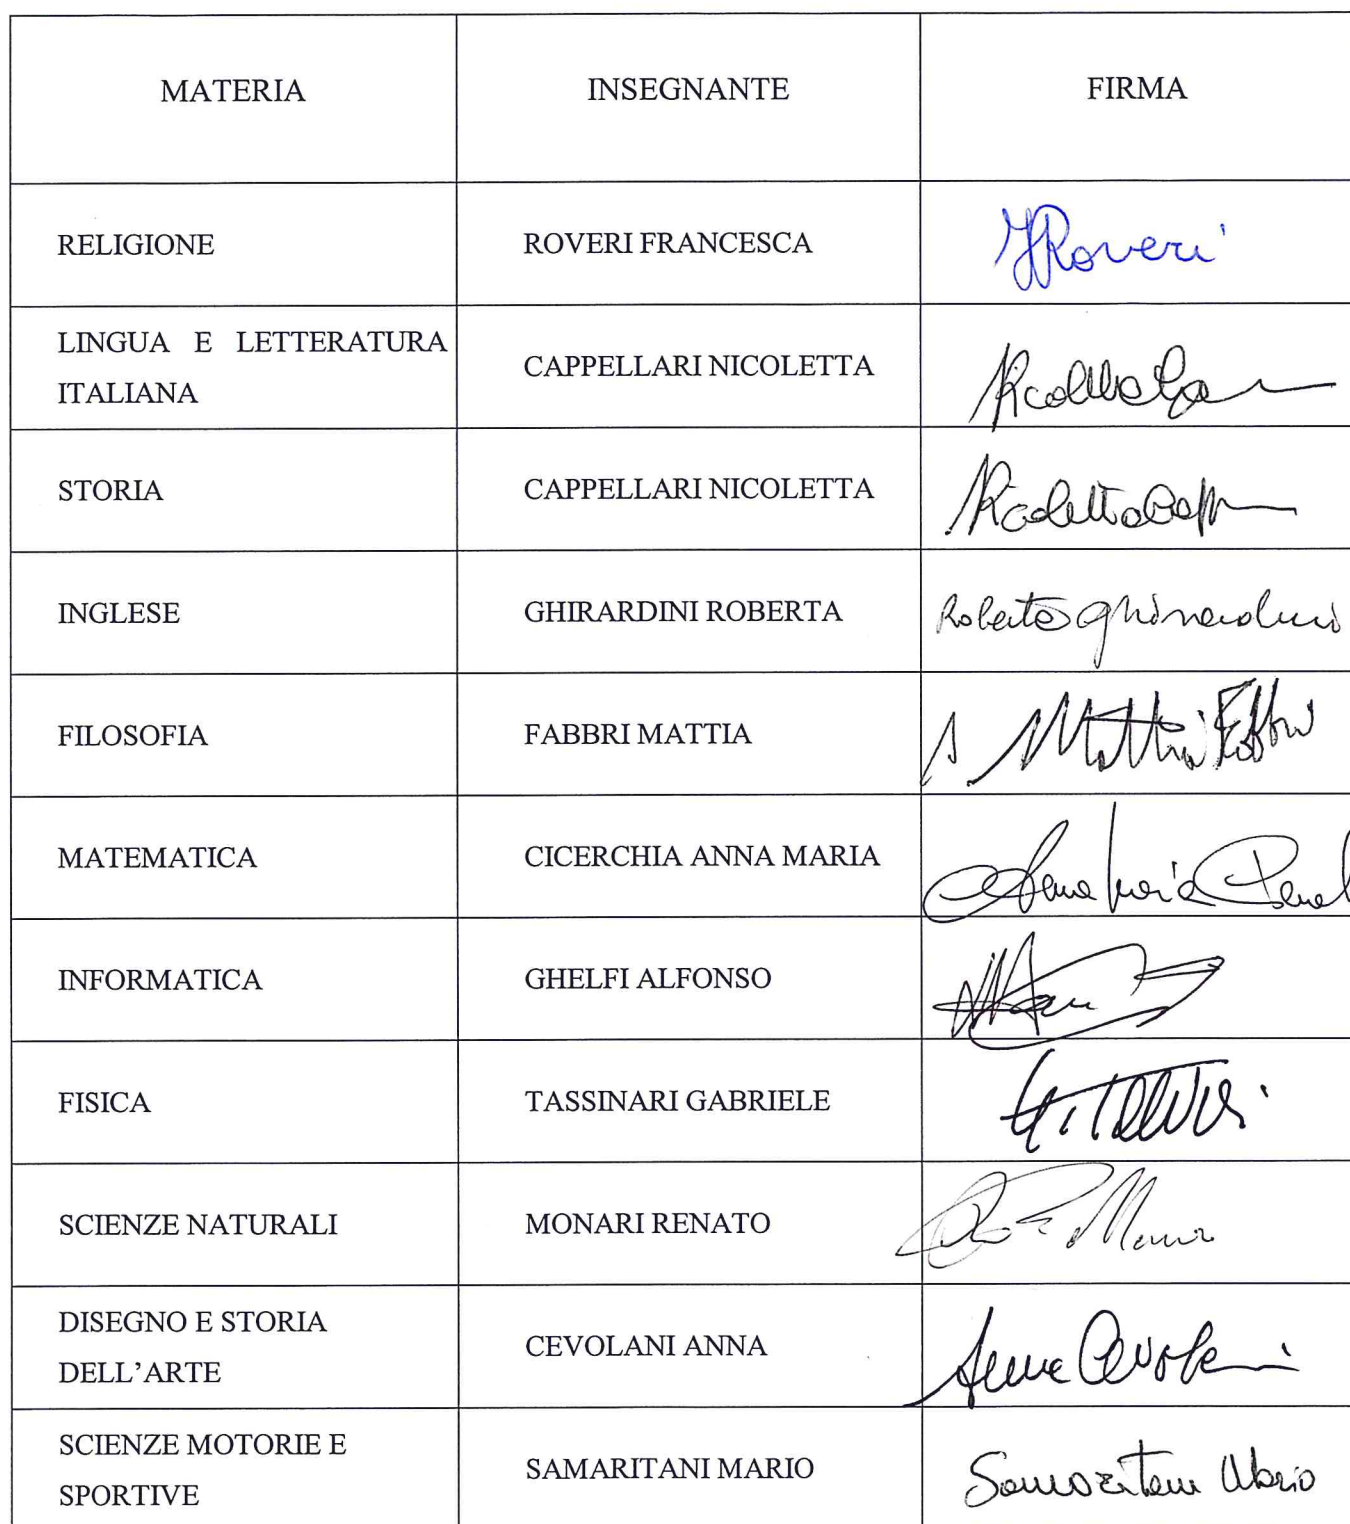 MATERIA INSEGNANTE FIRMA
RELIGIONE ROVERI FRANCESCA FRoveri
LINGUA E LETTERATURA
ITALIANA CAPPELLARI NICOLETTA
STORIA CAPPELLARI NICOLETTA Nicoletta Capp
INGLESE GHIRARDINI ROBERTA Roberta Ghirardini
FILOSOFIA FABBRI MATTIA Mattia Fabbri
MATEMATICA CICERCHIA ANNA MARIA Anna Maria
INFORMATICA GHELFI ALFONSO
FISICA TASSINARI GABRIELE
SCIENZE NATURALI MONARI RENATO
DISEGNO E STORIA
DELL'ARTE CEVOLANI ANNA Anna Cevolani
SCIENZE MOTORIE E
SPORTIVE SAMARITANI MARIO Samaritani Mario